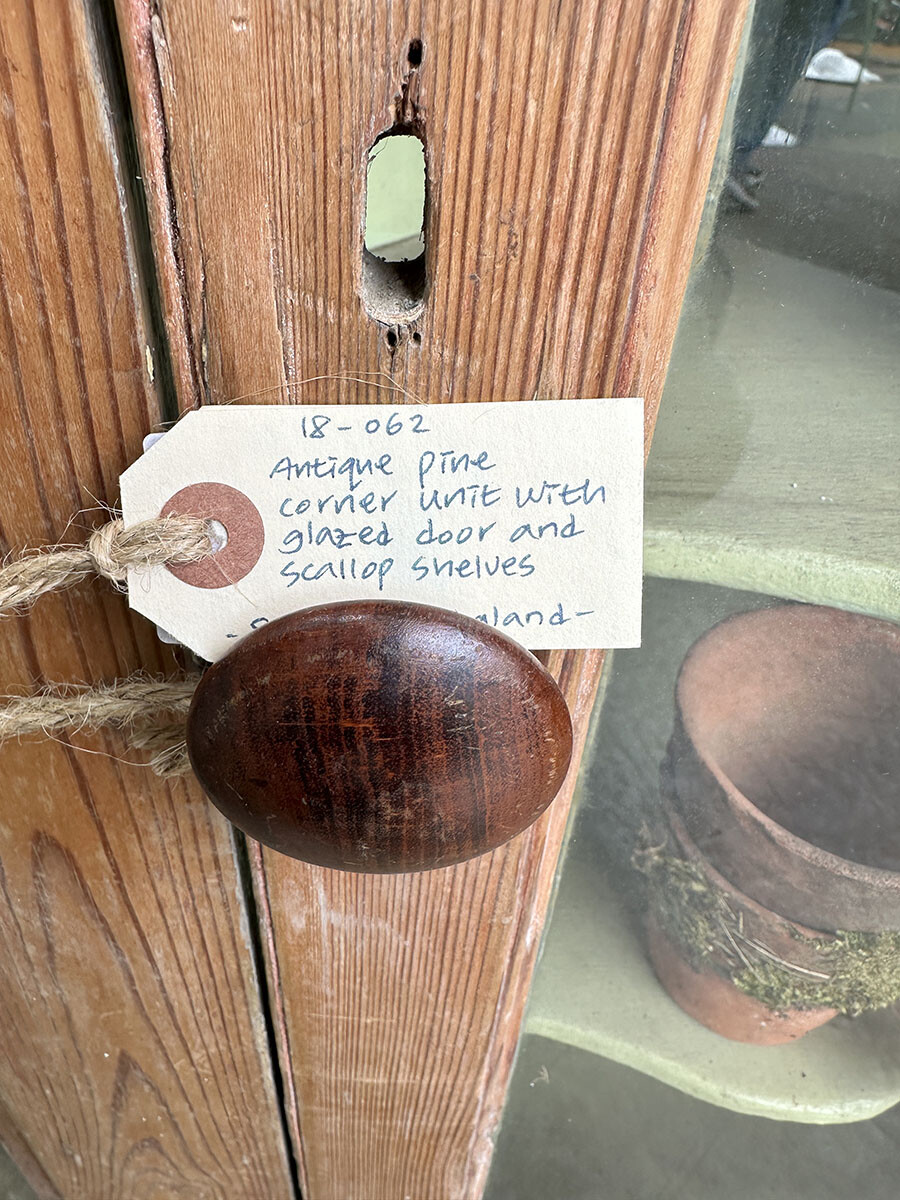 18-062
Antique pine
corner unit with
glazed door and
scallop shelves